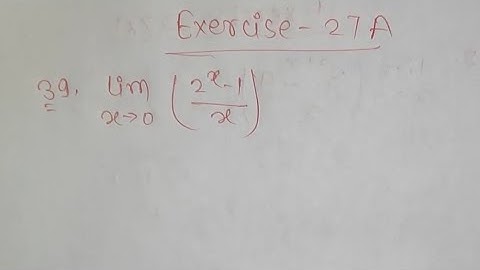 Exercise - 27A
39. lim x→0 (2^x-1/x)